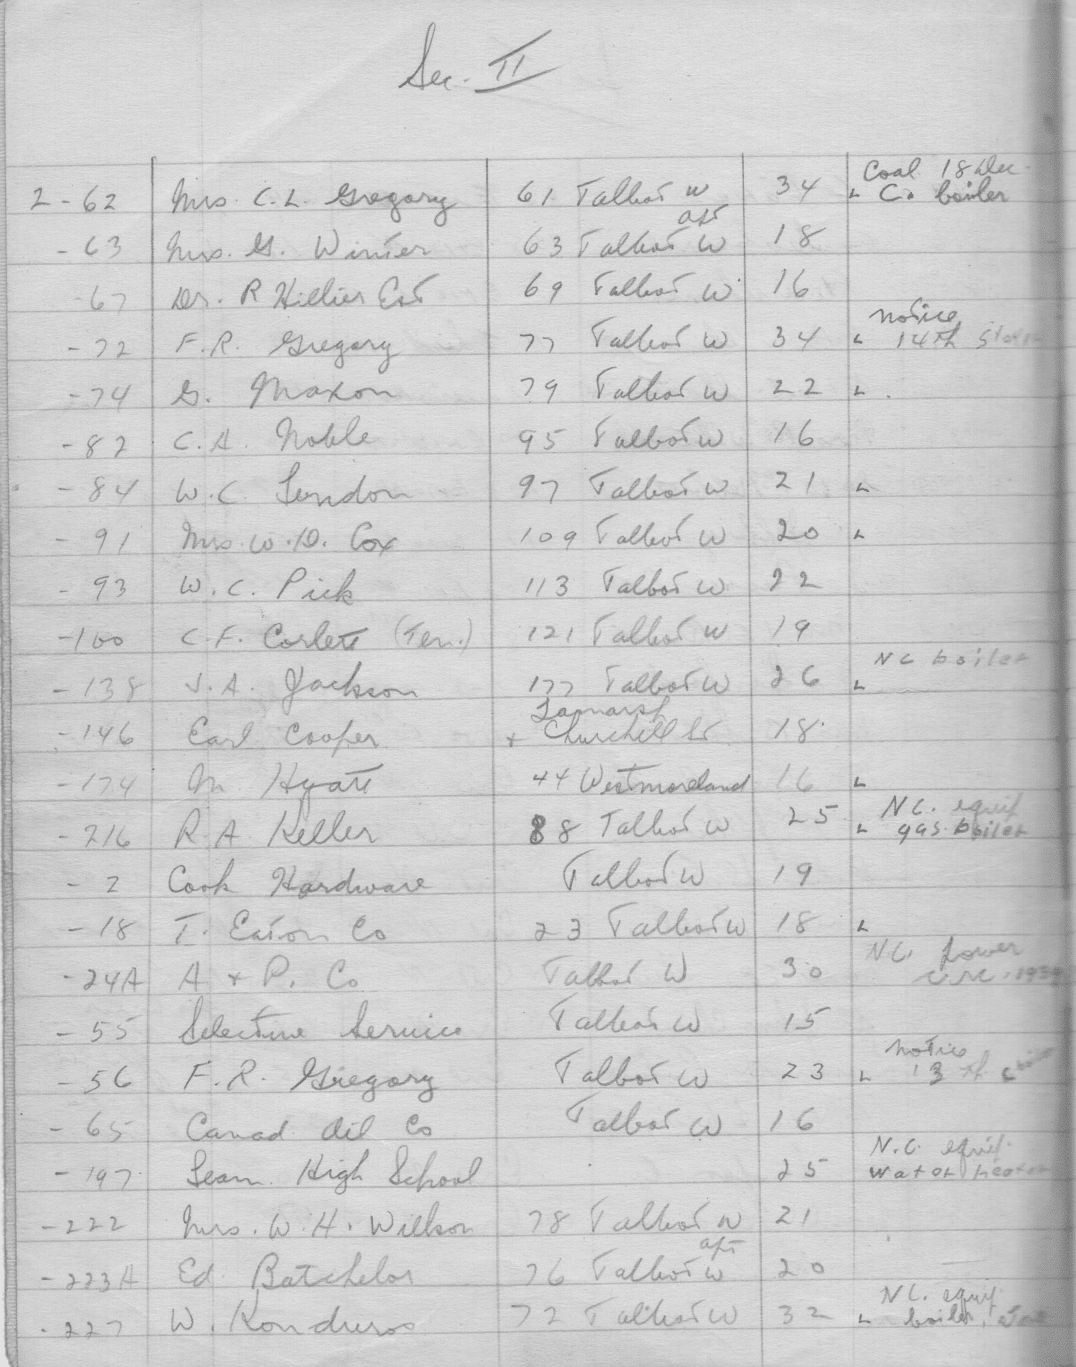 Sec. II
Coal 18 Dec.
2-62 Mrs. C. L. Gregory 61 Talbot W 34 L Co boiler
apt
-63 Mrs. G. Winter 63 Talbot W 18
-67 Dr. R Hillier Est 69 Talbot W 16
notice
-72 F.R. Gregory 77 Talbot W 34 L 14th
-74 G. Maxon 79 Talbot W 22 L
-82 C. A. Noble 95 Talbot W 16
-84 W. C. Lendon 97 Talbot W 21 L
-91 Mrs. W. D. Cox 109 Talbot W 20 L
-93 W. C. Pick 113 Talbot W 22
-100 C. F. Corlett (Ten.) 121 Talbot W 19
NC boiler
-138 J. A. Jackson 177 Talbot W 26 L
Lamarsh
-146 Earl Cooper + Churchill St 18
-174 M. Hyatt 44 Westmoreland 16 L
N.C. equip
-216 R. A Keller 88 Talbot W 25 L gas boiler
-2 Cook Hardware Talbot W 19
-18 T. Eaton Co 23 Talbot W 18 L
N.C. power
-24A A + P. Co Talbot W 30
-55 Selective Service Talbot W 15
notice
-56 F. R. Gregory Talbot W 23 L 13th
-65 Canad Oil Co Talbot W 16
N.C. equip.
-197 Leam. High School 25 water heater
-222 Mrs. W. H. Willson 78 Talbot W 21
apt
-223A Ed. Batchelor 76 Talbot W 20
N.C. equip
-227 W. Kondruros 72 Talbot W 32 L boiler,